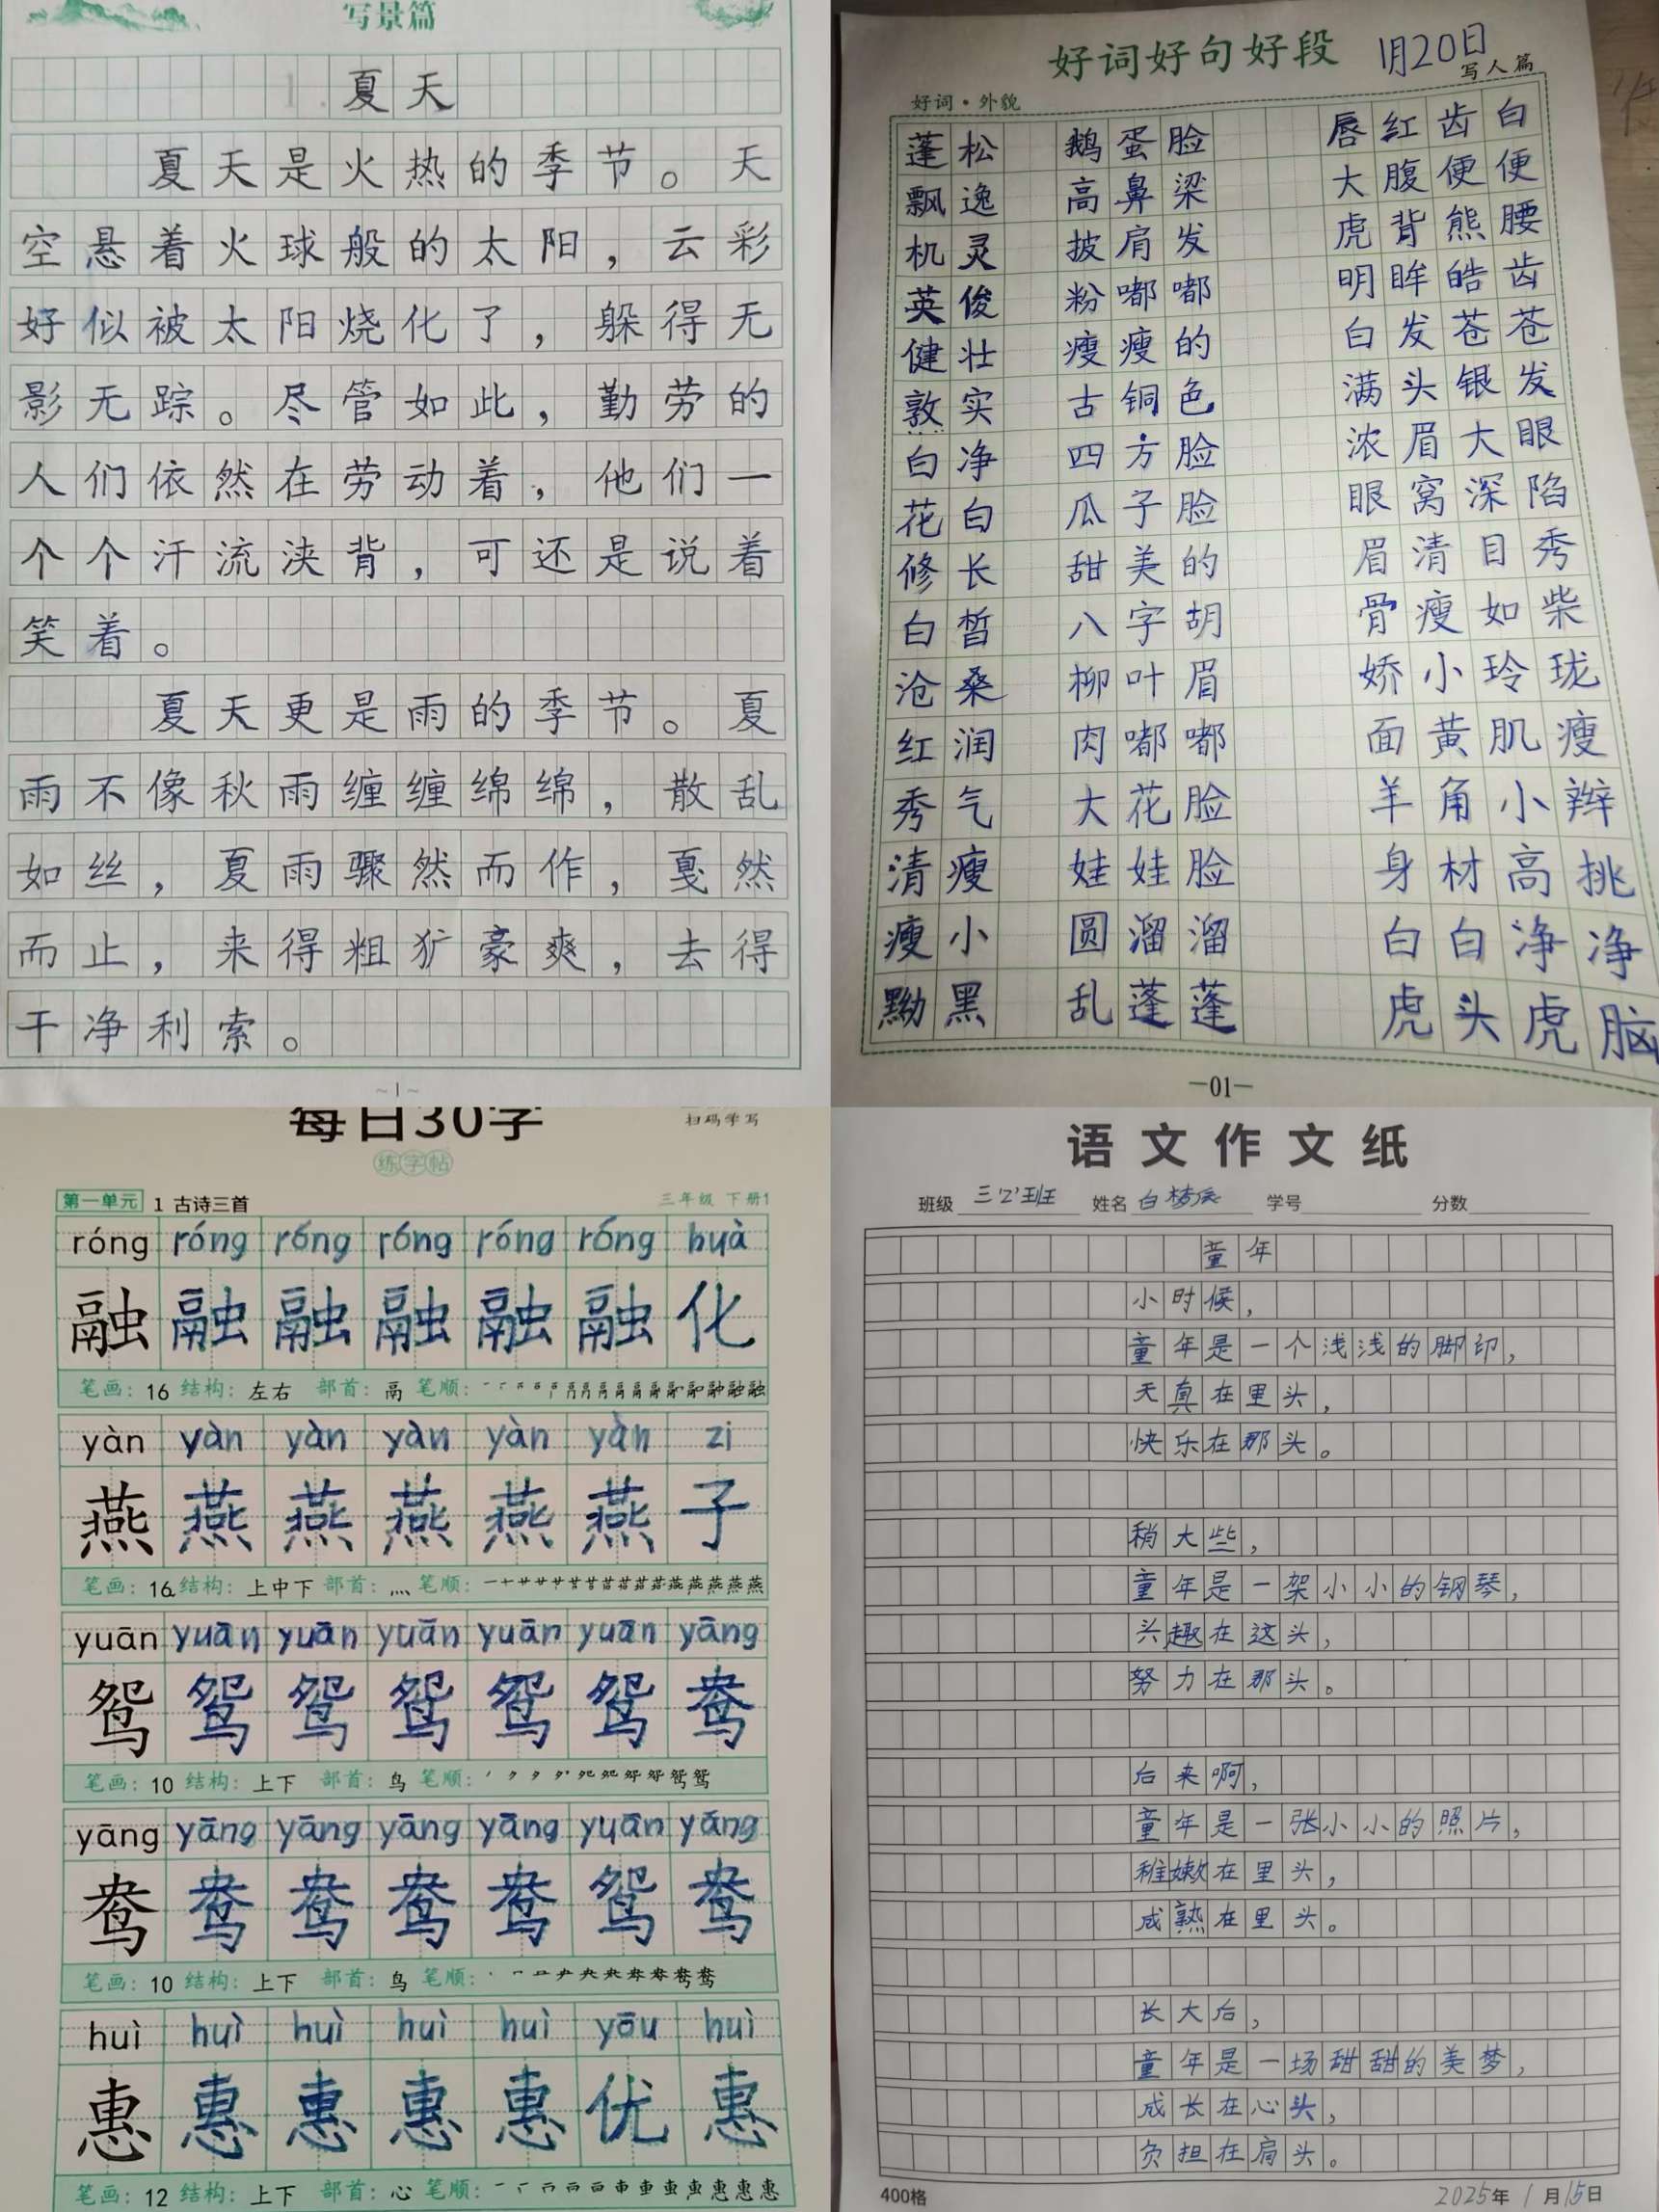 写景篇
1. 夏天
夏天是火热的季节。天
空悬着火球般的太阳，云彩
好似被太阳烧化了，躲得无
影无踪。尽管如此，勤劳的
人们依然在劳动着，他们一
个个汗流浃背，可还是说着
笑着。
夏天更是雨的季节。夏
雨不像秋雨缠缠绵绵，散乱
如丝，夏雨骤然而作，戛然
而止，来得粗犷豪爽，去得
干净利索。
~1~
好词好句好段 1月20日
写人篇
好词·外貌
蓬松 鹅蛋脸 唇红齿白
飘逸 高鼻梁 大腹便便
机灵 披肩发 虎背熊腰
英俊 粉嘟嘟 明眸皓齿
健壮 瘦瘦的 白发苍苍
敦实 古铜色 满头银发
白净 四方脸 浓眉大眼
花白 瓜子脸 眼窝深陷
修长 甜美的 眉清目秀
白皙 八字胡 骨瘦如柴
沧桑 柳叶眉 娇小玲珑
红润 肉嘟嘟 面黄肌瘦
秀气 大花脸 羊角小辫
清瘦 娃娃脸 身材高挑
瘦小 圆溜溜 白白净净
黝黑 乱蓬蓬 虎头虎脑
—01—
每日30字
扫码学写
练字帖
第一单元 1 古诗三首 三年级 下册1
róng róng róng róng róng róng huà
融 融 融 融 融 融 化
笔画：16 结构：左右 部首：鬲 笔顺：
yàn yàn yàn yàn yàn yàn zi
燕 燕 燕 燕 燕 燕 子
笔画：16 结构：上中下 部首：灬 笔顺：
yuān yuān yuān yuān yuān yuān yāng
鸳 鸳 鸳 鸳 鸳 鸳 鸯
笔画：10 结构：上下 部首：鸟 笔顺：
yāng yāng yāng yāng yāng yuān yāng
鸯 鸯 鸯 鸯 鸯 鸳 鸯
笔画：10 结构：上下 部首：鸟 笔顺：
huì huì huì huì huì yōu huì
惠 惠 惠 惠 惠 优 惠
笔画：12 结构：上下 部首：心 笔顺：
语文作文纸
班级 三'2'班 姓名 白梦 学号 分数
童年
小时候，
童年是一个浅浅的脚印，
天真在里头，
快乐在那头。
稍大些，
童年是一架小小的钢琴，
兴趣在这头，
努力在那头。
后来啊，
童年是一张小小的照片，
稚嫩在里头，
成熟在里头。
长大后，
童年是一场甜甜的美梦，
成长在心头，
负担在肩头。
400格 2025年1月15日